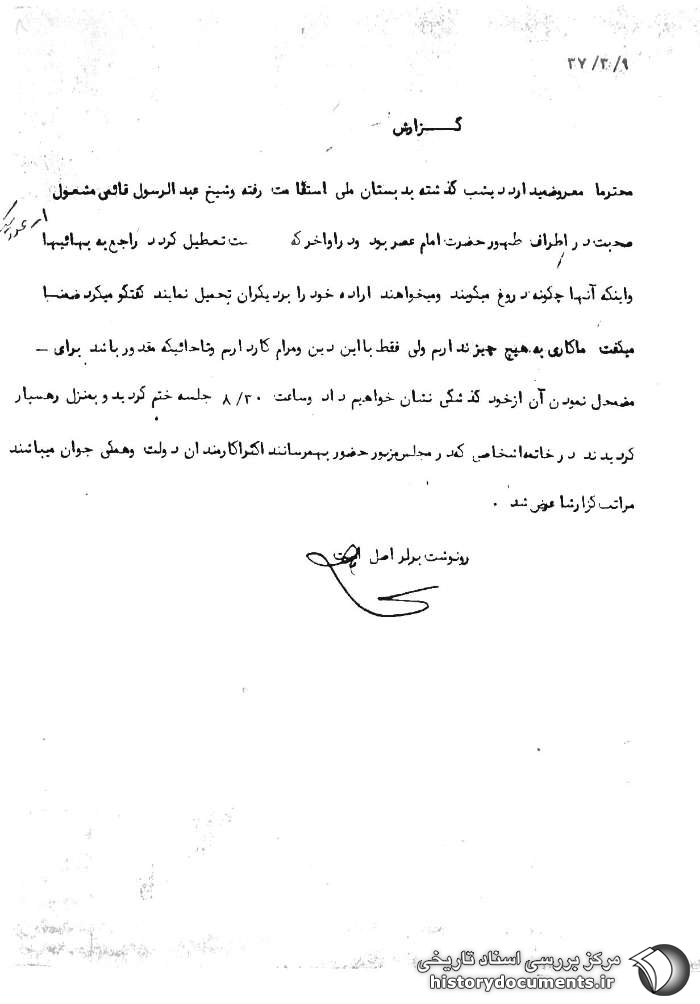 ۳۷/۳/۹
گـــزارش
محترما معروضمیدارد دیشب گذشته بدبستان ملی استقامت رفته وشیخ عبدالرسول قائمی مشغول
صحبت در اطراف ظهور حضرت امام عصر بود ودر اواخر که ست تعطیل کردد راجع به بهائیها
واینکه آنها چگونه دروغ میگویند ومیخواهند اراده خود را بردیگران تحمیل نمایند گفتگو میکرد ضمنا
میگفت ماکاری به هیچ چیز نداریم ولی فقط با این دین ومرام کار داریم وتاحائیکه مقدور باشد برای –
مضمحل نمودن آن ازخود گذشتگی نشان خواهیم داد وساعت ۸/۳۰ جلسه ختم گردید و بمنزل رهسپار
گردیدند در خاتمه اشخاصی که در مجلس مزبور حضور بهم رسانند اکثرا کارمندان دولت وهمگی جوان میباشند
مراتب گزارشا عرض شد .
رونوشت برابر اصل است
مرکز بررسی اسناد تاریخی
historydocuments.ir